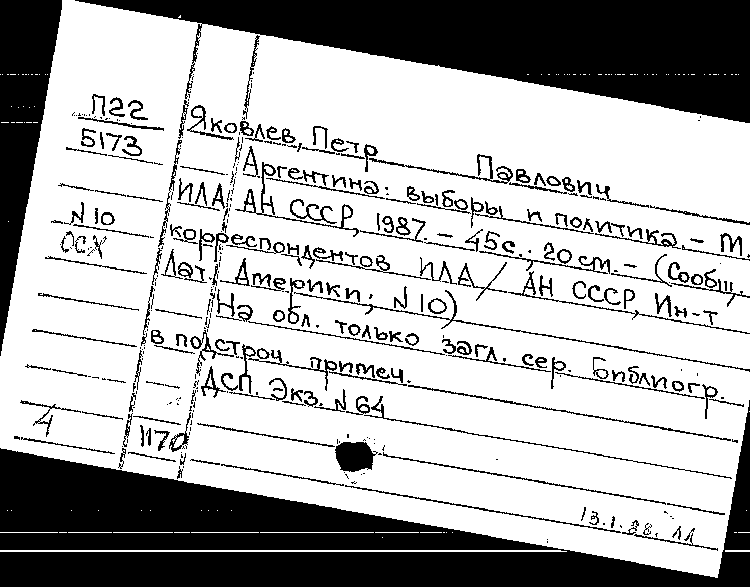 П22
5173
N 10
ОСХ
Яковлев, Петр Павлович
Аргентина: выборы и политика. – М.
ИЛА АН СССР, 1987. – 45с.; 20см. – (Сообщ.
корреспондентов ИЛА / АН СССР, Ин-т
Лат. Америки; N 10)
На обл. только загл. сер. Библиогр.
в подстроч. примеч.
ДСП. Экз. N 64
4
1170
13.1.88.